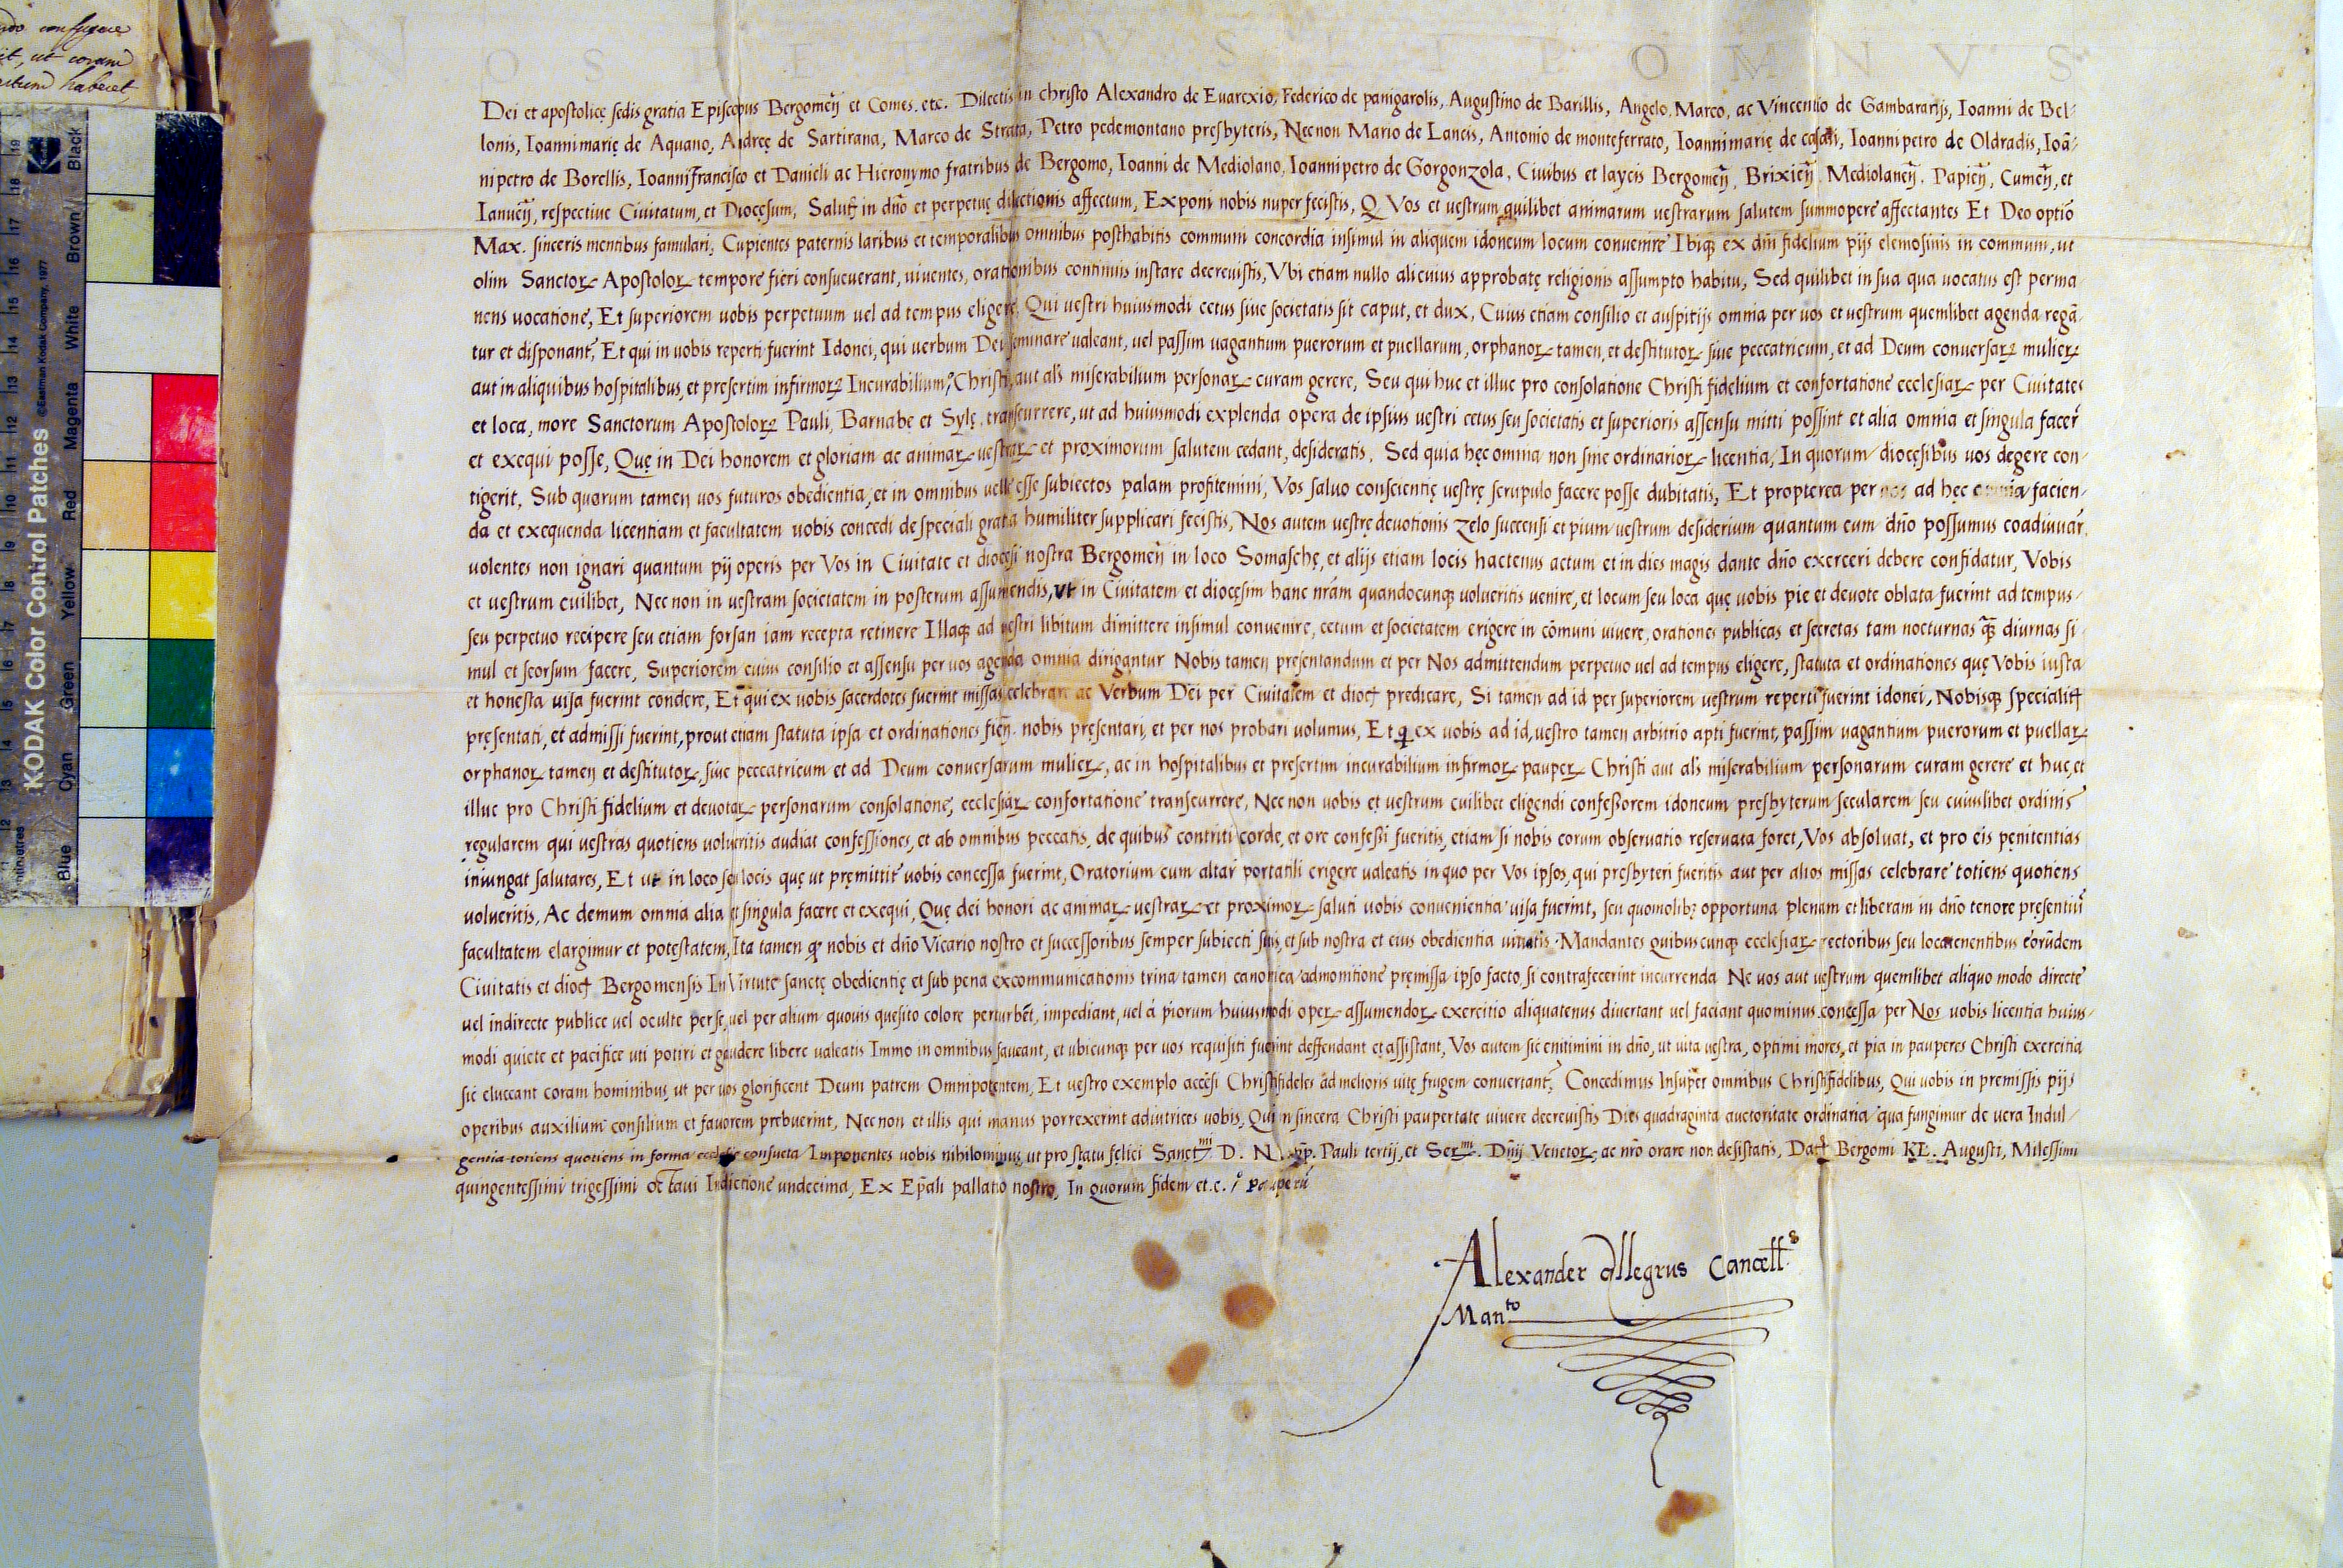 ndo confugere
it, ut coram
actum haberet,
KODAK Color Control Patches
©Eastman Kodak Company, 1977
Blue Cyan Green Yellow Red Magenta White Brown Black
N O S V S L I P O M N V S
Dei et apostolicę sedis gratia Episcopus Bergomeñ et Comes. etc. Dilectis in christo Alexandro de Euarexio, Federico de panigarolis, Augustino de Barillis, Angelo, Marco, ac Vincentio de Gambararijs, Ioanni de Bel-
lonis, Ioannimarię de Aquano, Andreę de Sartirana, Marco de Strata, Petro pedemontano presbyteris, Necnon Mario de Lancis, Antonio de monteferrato, Ioannimarię de casali, Ioannipetro de Oldradis, Ioā-
nipetro de Borellis, Ioannifrancisco et Danieli ac Hieronymo fratribus de Bergomo, Ioanni de Mediolano, Ioannipetro de Gorgonzola, Ciuibus et laycis Bergomeñ, Brixieñ, Mediolaneñ, Papieñ, Cumeñ, et
Ianueñ, respectiue Ciuitatum, et Diocęsum, Salutē in dño et perpetuę dilectionis affectum, Exponi nobis nuper fecistis, Q Vos et uestrum quilibet animarum uestrarum salutem summopere affectantes Et Deo optio
Max. sinceris mentibus famulari, Cupientes paternis laribus et temporalibus omnibus posthabitis communi concordia insimul in aliquem idoneum locum conuenire Ibiqȝ ex dñi fidelium pijs elemosinis in commun, ut
olim Sanctorꝝ Apostolorꝝ tempore fieri consueuerant, uiuentes, orationibus continuis instare decreuistis, Vbi etiam nullo alicuius approbatę religionis assumpto habitu, Sed quilibet in sua qua uocatus est perma
nens uocatione, Et superiorem uobis perpetuum uel ad tempus eligere, Qui uestri huiusmodi cetus siue societatis sit caput, et dux, Cuius etiam consilio et auspitijs omnia per uos et uestrum quemlibet agenda regā-
tur et disponant᷑, Et qui in uobis reperti fuerint Idonei, qui uerbum Dei seminare ualeant, uel passim uagantium puerorum et puellarum, orphanorꝝ tamen, et destitutorꝝ siue peccatricum, et ad Deum conuersarꝝ mulierꝝ
aut in aliquibus hospitalibus, et presertim infirmorꝝ Incurabilium, Christi, aut al̃s miserabilium personarꝝ curam gerere, Seu qui huc et illuc pro consolatione Christi fidelium et confortatione ecclesiarꝝ per Ciuitates
et loca, more Sanctorum Apostolorꝝ Pauli, Barnabe et Sylę, transcurrere, ut ad huiusmodi explenda opera de ipsius uestri cetus seu societatis et superioris assensu mitti possint et alia omnia et singula facer̃
et exequi posse, Quę in Dei honorem et gloriam ac animarꝝ uestrarꝝ et proximorum salutem cedant, desideratis. Sed quia hęc omnia non sine ordinariorꝝ licentia, In quorum diocęsibus uos degere con-
tigerit, Sub quorum tamen uos futuros obedientia, et in omnibus uelle esse subiectos palam profitemini, Vos saluo conscientię uestrę scrupulo facere posse dubitatis, Et propterea per nos ad hęc omnia facien-
da et exequenda licentiam et facultatem uobis concedi de speciali gratia humiliter supplicari fecistis, Nos autem uestrę deuotionis zelo succensi et pium uestrum desiderium quantum cum dño possumus coadiuuar̃,
uolentes non ignari quantum pij operis per Vos in Ciuitate et diocęsi nostra Bergomeñ in loco Somaschę, et alijs etiam locis hactenus actum et in dies magis dante dño exerceri debere confidatur, Vobis
et uestrum cuilibet, Nec non in uestram societatem in posterum assumendis, ut in Ciuitatem et diocęsim hanc nram quandocunqȝ uolueritis uenire, et locum seu loca quę uobis pie et deuote oblata fuerint ad tempus
seu perpetuo recipere seu etiam forsan iam recepta retinere Illaqȝ ad uestri libitum dimittere insimul conuenire, cetum et societatem erigere in cōmuni uiuere, orationes publicas et secretas tam nocturnas qȝ diurnas si-
mul et seorsum facere, Superiorem cuius consilio et assensu per uos agenda omnia dirigantur Nobis tamen presentandum et per Nos admittendum perpetuo uel ad tempus eligere, statuta et ordinationes quę Vobis iusta
et honesta uisa fuerint condere, Et qui ex uobis sacerdotes fuerint missas celebrare ac Verbum Dei per Ciuitatem et dioc̃ predicare, Si tamen ad id per superiorem uestrum reperti fuerint idonei, Nobisqȝ specialit̃
pręsentati, et admissi fuerint, prout etiam statuta ipsa et ordinationes fieñ. nobis pręsentari, et per nos probari uolumus, Et qi ex uobis ad id, uestro tamen arbitrio apti fuerint, passim uagantium puerorum et puellarꝝ
orphanorꝝ tamen et destitutorꝝ, siue peccatricum et ad Deum conuersarum mulierꝝ, ac in hospitalibus et presertim incurabilium infirmorꝝ pauperꝝ Christi aut al̃s miserabilium personarum curam gerere et huc, et
illuc pro Christi fidelium et deuotarꝝ personarum consolatione, ecclesiarꝝ confortatione transcurrere, Nec non uobis et uestrum cuilibet eligendi confessorem idoneum presbyterum sęcularem seu cuiuslibet ordinis
regularem qui uestras quotiens uolueritis audiat confessiones, et ab omnibus peccatis, de quibus contriti corde, et ore confessi fueritis, etiam si nobis eorum obseruatio reseruata foret, Vos absoluat, et pro eis pęnitentias
iniungat salutares, Et ut in loco seu locis quę ut pręmittit᷑ uobis concessa fuerint, Oratorium cum altari portatili erigere ualeatis in quo per Vos ipsos, qui presbyteri fueritis aut per alios missas celebrare totiens quotiens
uolueritis, Ac demum omnia alia et singula facere et exequi, Quę dei honori ac animarꝝ uestrarꝝ et proximorꝝ saluti uobis conuenientia uisa fuerint, seu quomolibȝ opportuna plenam et liberam in dño tenore presentiū
facultatem elargimur et potęstatem, Ita tamen qȝ nobis et dño Vicario nostro et successoribus semper subiecti sitis, et sub nostra et eius obedientia uiuatis. Mandantes quibuscunqȝ ecclesiarꝝ rectoribus seu locatenentibus eorūdem
Ciuitatis et dioc̃ Bergomensis In Virtute sanctę obedientię et sub pena excommunicationis trina tamen canonica admonitione pręmissa ipso facto, si contrafecerint incurrenda Ne uos aut uestrum quemlibet aliquo modo directe
uel indirecte publice uel oculte per se, uel per alium quouis quesito colore perturbēt, impediant, uel á piorum huiusmodi operꝝ assumendorꝝ exercitio aliquatenus diuertant uel faciant quominus concessa per Nos uobis licentia huius-
modi quiete et pacifice uti potiri et gaudere libere ualeatis Immo in omnibus faueant, et ubicunqȝ per uos requisiti fuerint deffendant et assistant, Vos autem sic enitimini in dño, ut uita uestra, optimi mores, et pia in pauperes Christi exercitia
sic eluceant coram hominibus, ut per uos glorificent Deum patrem Omnipotentem, Et uestro exemplo accēsi Christifideles ad melioris uitę frugem conuertant᷑, Concedimus Insuper omnibus Christifidelibus, Qui uobis in premissis pijs
operibus auxilium consilium et fauorem prebuerint, Nec non et illis qui manus porrexerint adiutrices uobis, Qui in sincera Christi paupertate uiuere decreuistis Dies quadraginta auctoritate ordinaria qua fungimur de uera Indul-
gentia totiens quotiens in forma ecclesię consueta Imponentes uobis nihilominus, ut pro statu fęlici Sanct.mi D. N. pp. Pauli tertij, et Ser.mi Dñij Venetorꝝ, ac nro orare non desistatis, Dat̃ Bergomi KL. Augusti, Milessimi
quingentessimi trigessimi octaui Indictione undecima, Ex Ep̃ali pallatio nostro, In quorum fidem et.c.
Alexander Allegrus Cancell.s
Man.to